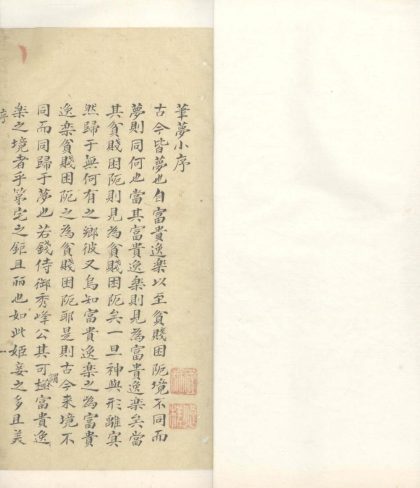 筆夢小序
古今皆夢也自富貴逸樂以至貧賤困阨境不同而
夢則同何也當其富貴逸樂則見為富貴逸樂矣當
其貧賤困阨則見為貧賤困阨矣一旦神與形離寞
然歸于無何有之鄉彼又烏知富貴逸樂之為富貴
逸樂貧賤困阨之為貧賤困阨耶是則古今来境不
同而同歸于夢也若錢侍御秀峰公其可謂極富貴逸
樂之境者乎第宅之鉅且麗也如此姬妾之多且美
序